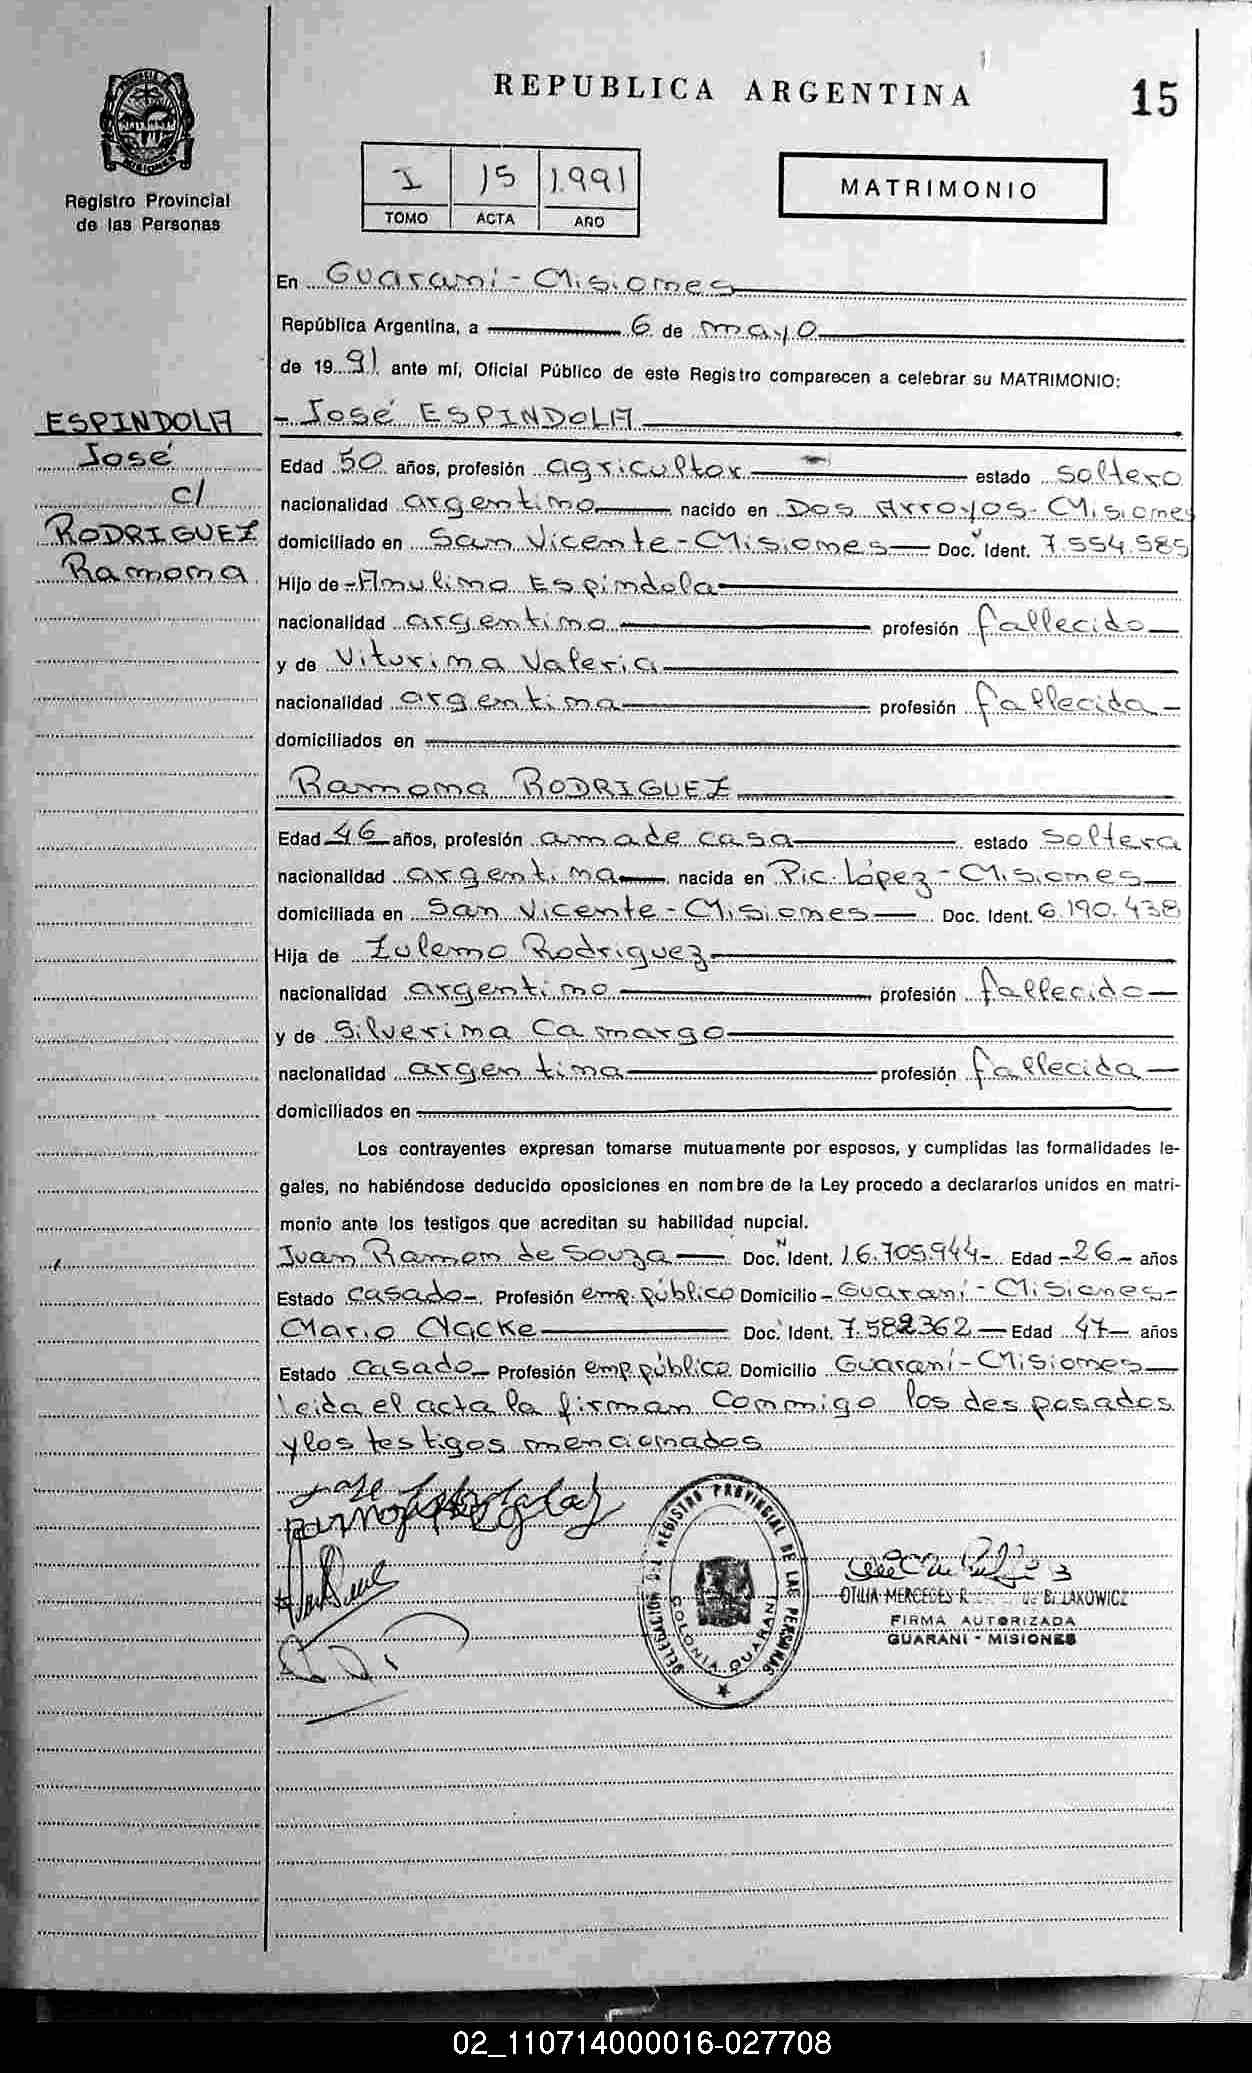 REPUBLICA ARGENTINA
15
Registro Provincial
de las Personas
I 15 1.991
TOMO ACTA AÑO
MATRIMONIO
En Guaraní - Misiones
República Argentina, a 6 de mayo
de 19 91 ante mí, Oficial Público de este Registro comparecen a celebrar su MATRIMONIO:
ESPINDOLA
José
c/
RODRIGUEZ
Ramona
- José ESPINDOLA
Edad 50 años, profesión agricultor estado soltero
nacionalidad argentino nacido en Dos Arroyos - Misiones
domiciliado en San Vicente - Misiones Doc. Ident. 7.554.585
Hijo de - Anulino Espindola
nacionalidad argentino profesión fallecido
y de Viturina Valeria
nacionalidad argentina profesión fallecida -
domiciliados en
Ramona RODRIGUEZ
Edad 46 años, profesión ama de casa estado soltera
nacionalidad argentina nacida en Pic. López - Misiones
domiciliada en San Vicente - Misiones Doc. Ident. 6.190.438
Hija de Zulemo Rodriguez
nacionalidad argentino profesión fallecido
y de Silverina Camargo
nacionalidad argentina profesión fallecida
domiciliados en
Los contrayentes expresan tomarse mutuamente por esposos, y cumplidas las formalidades le-
gales, no habiéndose deducido oposiciones en nombre de la Ley procedo a declararlos unidos en matri-
monio ante los testigos que acreditan su habilidad nupcial.
Juan Ramon de Souza Doc. Ident. 16.709.944 - Edad - 26 - años
Estado casado - Profesión emp. público Domicilio - Guaraní - Misiones -
Mario Nacke Doc. Ident. 7.582362 Edad 47 años
Estado casado - Profesión emp. público Domicilio Guaraní - Misiones
Leida el acta la firman conmigo los desposados
y los testigos mencionados
DELEGACION DEL REGISTRO PROVINCIAL DE LAS PERSONAS
COLONIA GUARANI
OTILIA MERCEDES
FIRMA AUTORIZADA
GUARANI - MISIONES
02_110714000016-027708